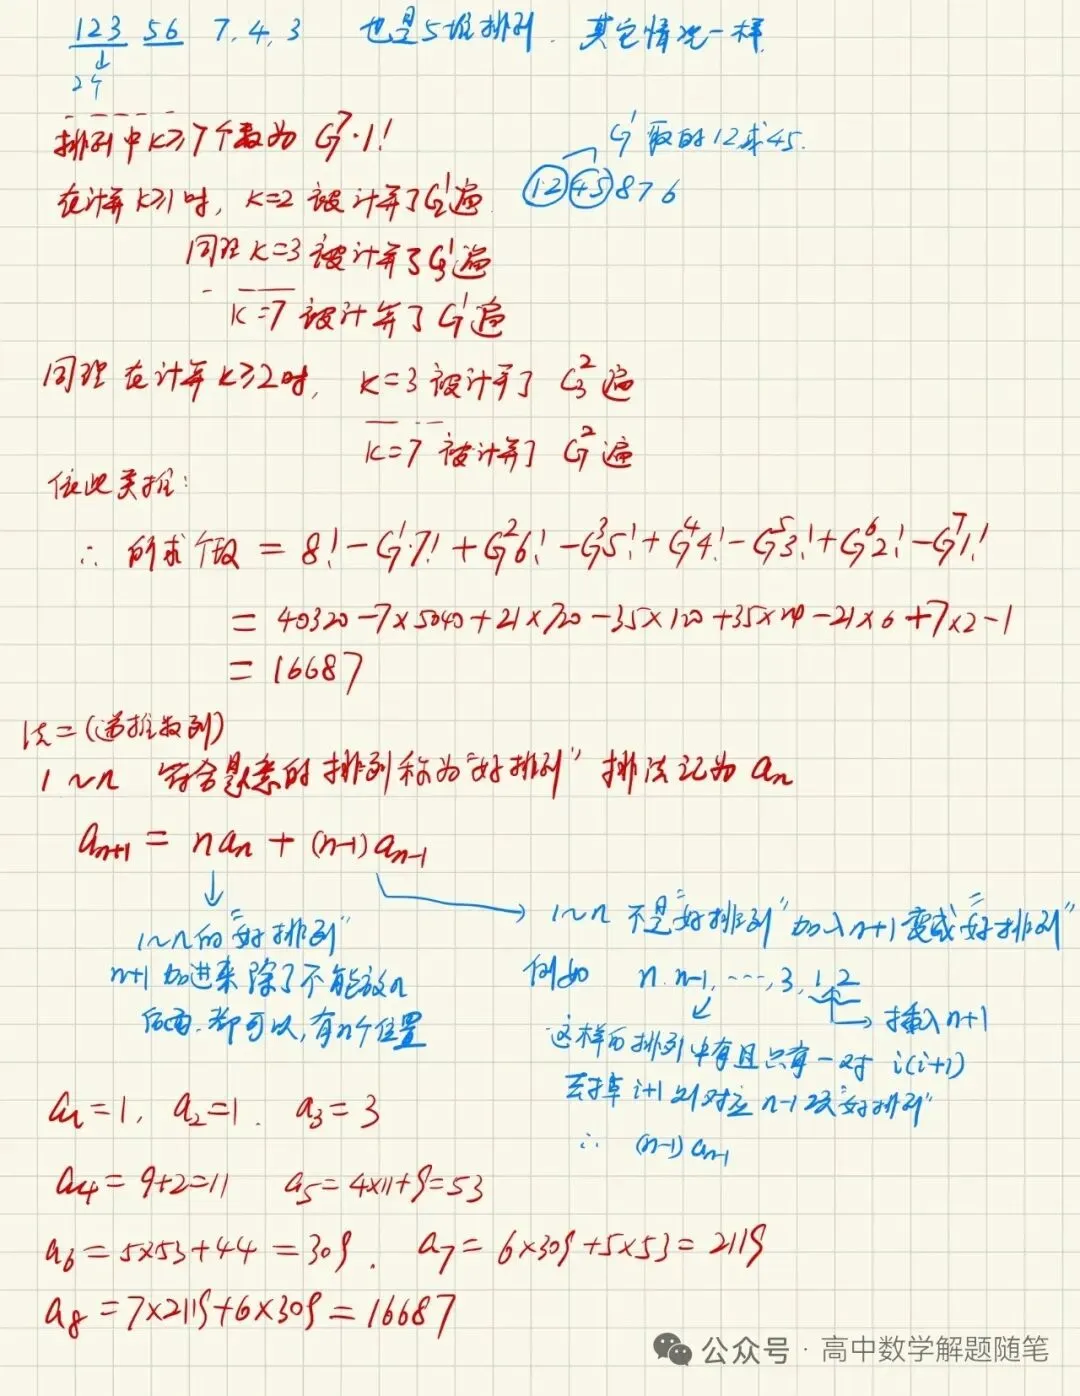 123 56 7,4,3 也是5堆排列. 其它情况一样
2个
排列中k≥7个数为 C₇⁷·1!
C₇¹取的12或45.
在计算k≥1时, k=2被计算了C₂¹遍
12 45 8 7 6
同理k=3被计算了C₃¹遍
k=7被计算了C₇¹遍
同理 在计算k≥2时, k=3被计算了 C₃²遍
k=7被计算了 C₇²遍
依此类推:
∴ 所求个数 = 8! - C₇¹7! + C₇²6! - C₇³5! + C₇⁴4! - C₇⁵3! + C₇⁶2! - C₇⁷1!
= 40320-7×5040+21×720-35×120+35×24-21×6+7×2-1
= 16687
法二(递推数列)
1~n 符合题意的排列称为"好排列" 排法记为aₙ
aₙ₊₁ = naₙ + (n-1)aₙ₋₁
1~n的"好排列"
n+1加进来除了不能放n
后面.都可以,有n个位置
1~n 不是"好排列"加入n+1变成"好排列"
例如 n.n-1,…,3,1,2
插入n+1
这样的排列中有且只有一对 i(i+1)
去掉i+1则对应n-1项"好排列"
∴ (n-1)aₙ₋₁
a₁=1, a₂=1. a₃=3
a₄=9+2=11 a₅=4×11+9=53
a₆=5×53+44=309. a₇=6×309+5×53=2119
a₈=7×2119+6×309=16687
公众号·高中数学解题随笔